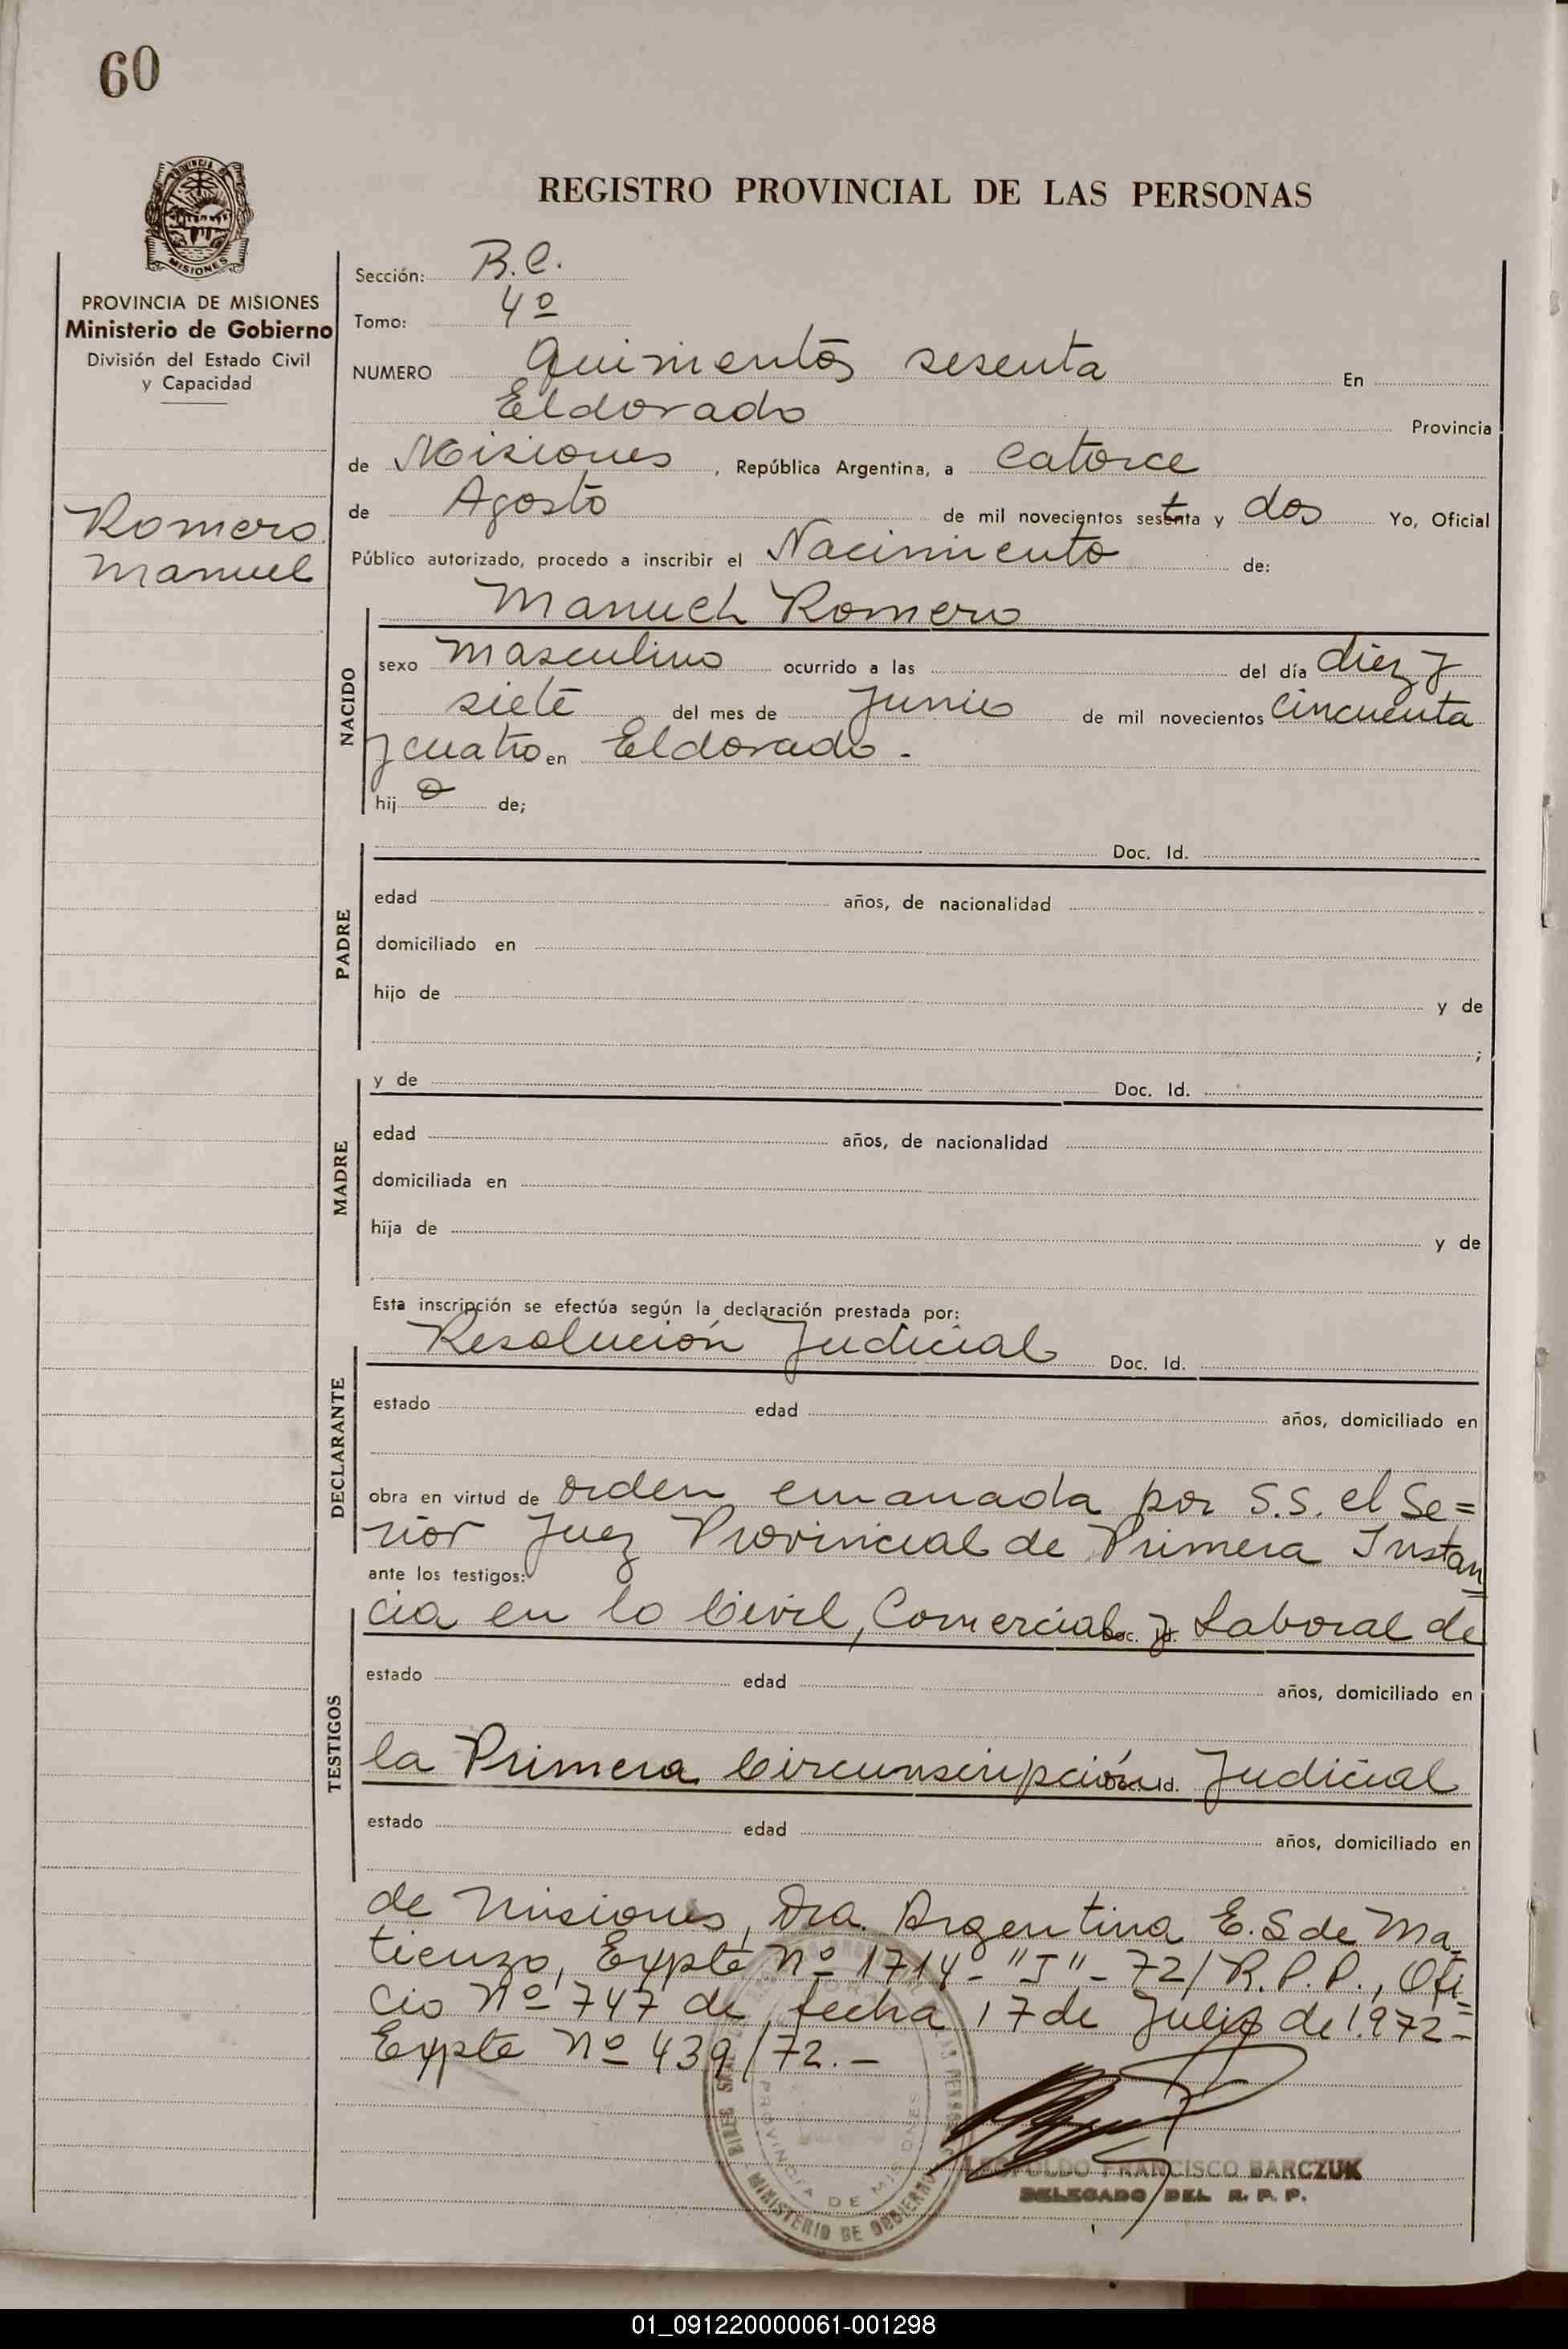 60
PROVINCIA DE MISIONES
Ministerio de Gobierno
División del Estado Civil
y Capacidad
Romero
Manuel
REGISTRO PROVINCIAL DE LAS PERSONAS
Sección: B.C.
Tomo: 4º
NUMERO Quinientos sesenta En
Eldorado Provincia
de Misiones, República Argentina, a Catorce
de Agosto de mil novecientos setenta y dos Yo, Oficial
Público autorizado, procedo a inscribir el Nacimiento de:
Manuel Romero
NACIDO
sexo Masculino ocurrido a las del día diez y
siete del mes de Junio de mil novecientos Cincuenta
y cuatro en Eldorado.-
hijo de;
Doc. Id.
PADRE
edad años, de nacionalidad
domiciliado en
hijo de y de
;
MADRE
y de Doc. Id.
edad años, de nacionalidad
domiciliada en
hija de y de
Esta inscripción se efectúa según la declaración prestada por:
Resolución Judicial Doc. Id.
DECLARANTE
estado edad años, domiciliado en
obra en virtud de orden emanada por S.S. el Se=
ñor Juez Provincial de Primera Instan=
ante los testigos:
cia en lo Civil, Comercial Doc. Id. y Laboral de
TESTIGOS
estado edad años, domiciliado en
la Primera Circunscripción Doc. Id. Judicial
estado edad años, domiciliado en
de Misiones, Dra. Argentina E. S de Ma=
tienzo, Expte Nº 1714-"J"-72/R.P.P., Ofi=
cio Nº 747 de fecha 17 de Julio de 1.972-
Expte Nº 439/72.-
PROVINCIA DE MISIONES
MINISTERIO DE GOBIERNO
LEOPOLDO FRANCISCO BARCZUK
DELEGADO DEL R. P. P.
01_091220000061-001298